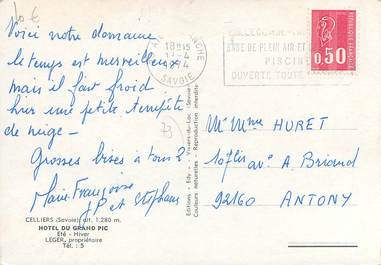 10 €
Voici notre domaine
le temps est merveilleux
mais il fait froid
hier une petite tempête
de neige -
Grosses bises à tous 2
Marie Françoise
JP et Stéphane
CELLIERS (Savoie) alt. 1.280 m.
HOTEL DU GRAND PIC
Eté - Hiver
LEGER, propriétaire
Tél. : 5
Couleurs naturelles - Reproduction interdite
18H15
17-4
1974
SAVOIE
BASE DE PLEIN AIR ET
PISCINE
OUVERTE TOUTE
0,50
73
M. Mme HURET
10 av. A. Briand
92160 ANTONY